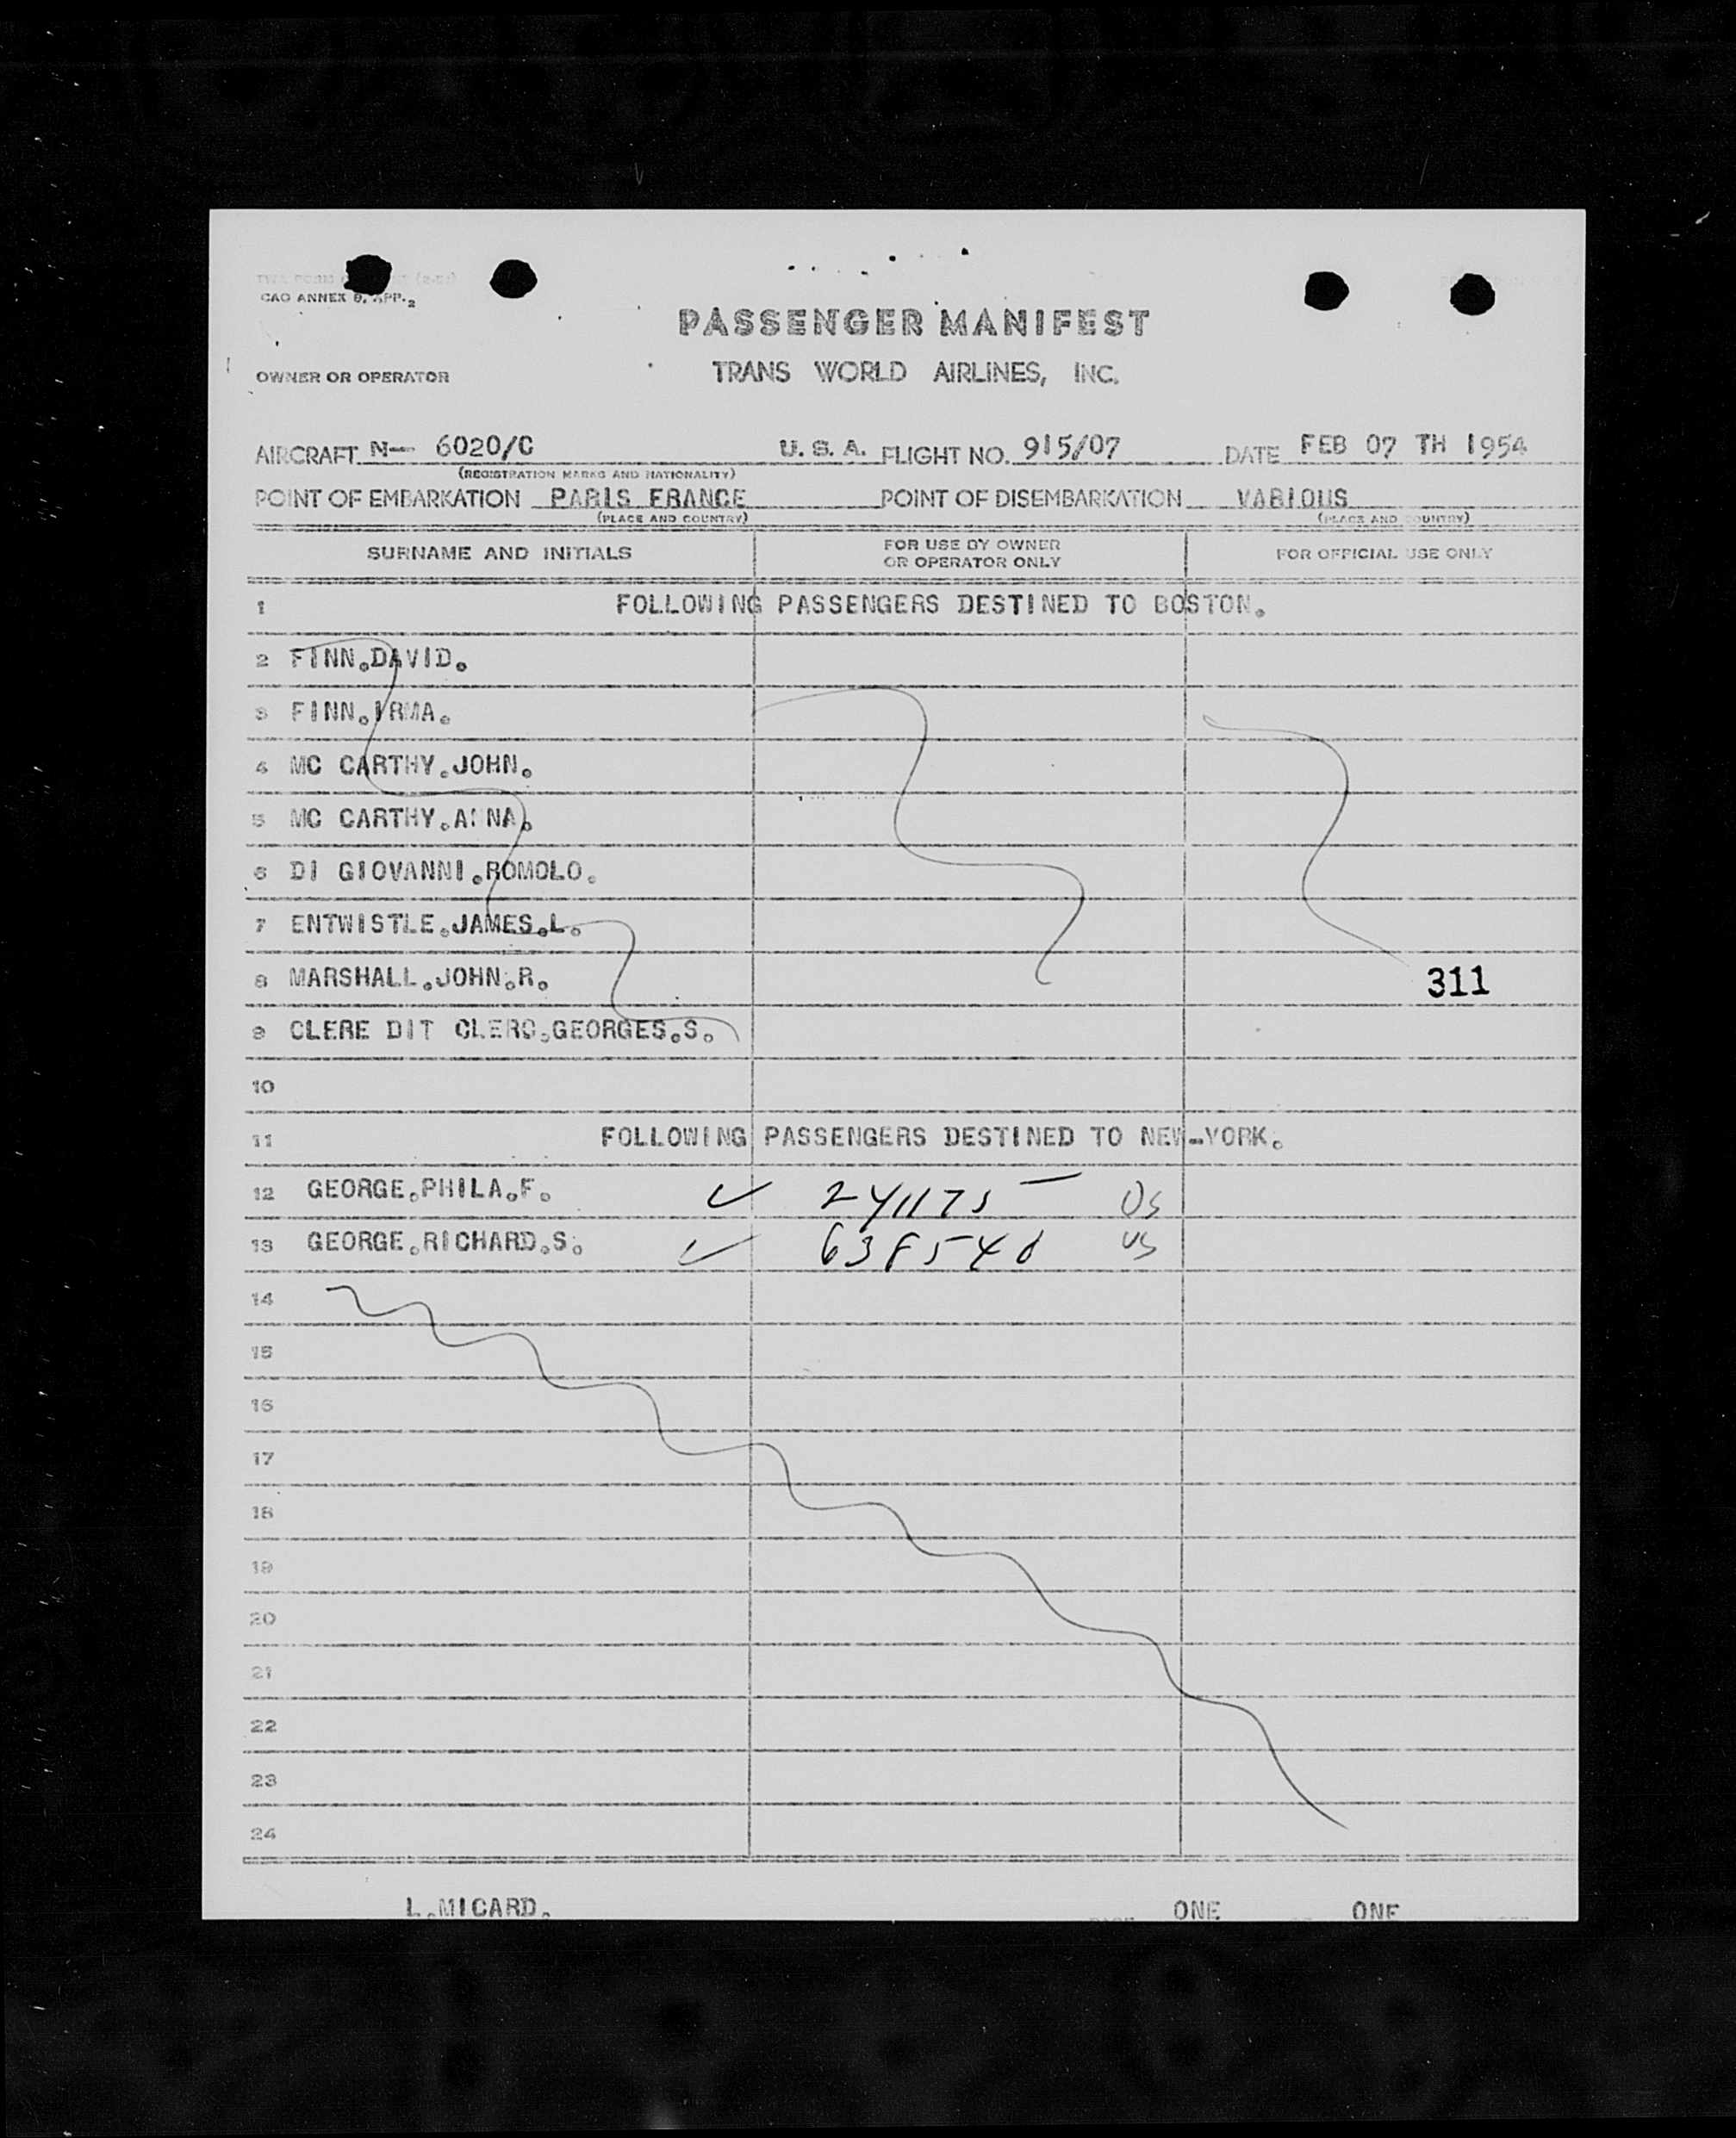 CAO ANNEX 9, APP. 2
PASSENGER MANIFEST
OWNER OR OPERATOR TRANS WORLD AIRLINES, INC.
AIRCRAFT N— 6020/C U.S.A. FLIGHT NO. 915/07 DATE FEB 07 TH 1954
(REGISTRATION MARKS AND NATIONALITY)
POINT OF EMBARKATION PARIS FRANCE POINT OF DISEMBARKATION VARIOUS
(PLACE AND COUNTRY) (PLACE AND COUNTRY)
SURNAME AND INITIALS FOR USE BY OWNER OR OPERATOR ONLY FOR OFFICIAL USE ONLY
1 FOLLOWING PASSENGERS DESTINED TO BOSTON.
2 FINN.DAVID.
3 FINN.IRMA.
4 MC CARTHY.JOHN.
5 MC CARTHY.ANNA.
6 DI GIOVANNI.ROMOLO.
7 ENTWISTLE.JAMES.L.
8 MARSHALL.JOHN.R. 311
9 CLERE DIT CLERC.GEORGES.S.
10
11 FOLLOWING PASSENGERS DESTINED TO NEW-YORK.
12 GEORGE.PHILA.F. ✓ US
13 GEORGE.RICHARD.S. ✓ US
14
15
16
17
18
19
20
21
22
23
24
L.MICARD. ONE ONE